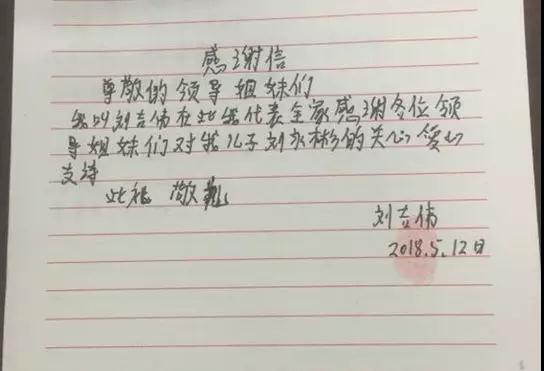 感谢信
尊敬的领导姐妹们
我叫刘吉伟在此我代表全家感谢各位领
导姐妹们对我儿子刘永彬的关心爱心
支持
此礼 敬礼
刘吉伟
2018.5.12日